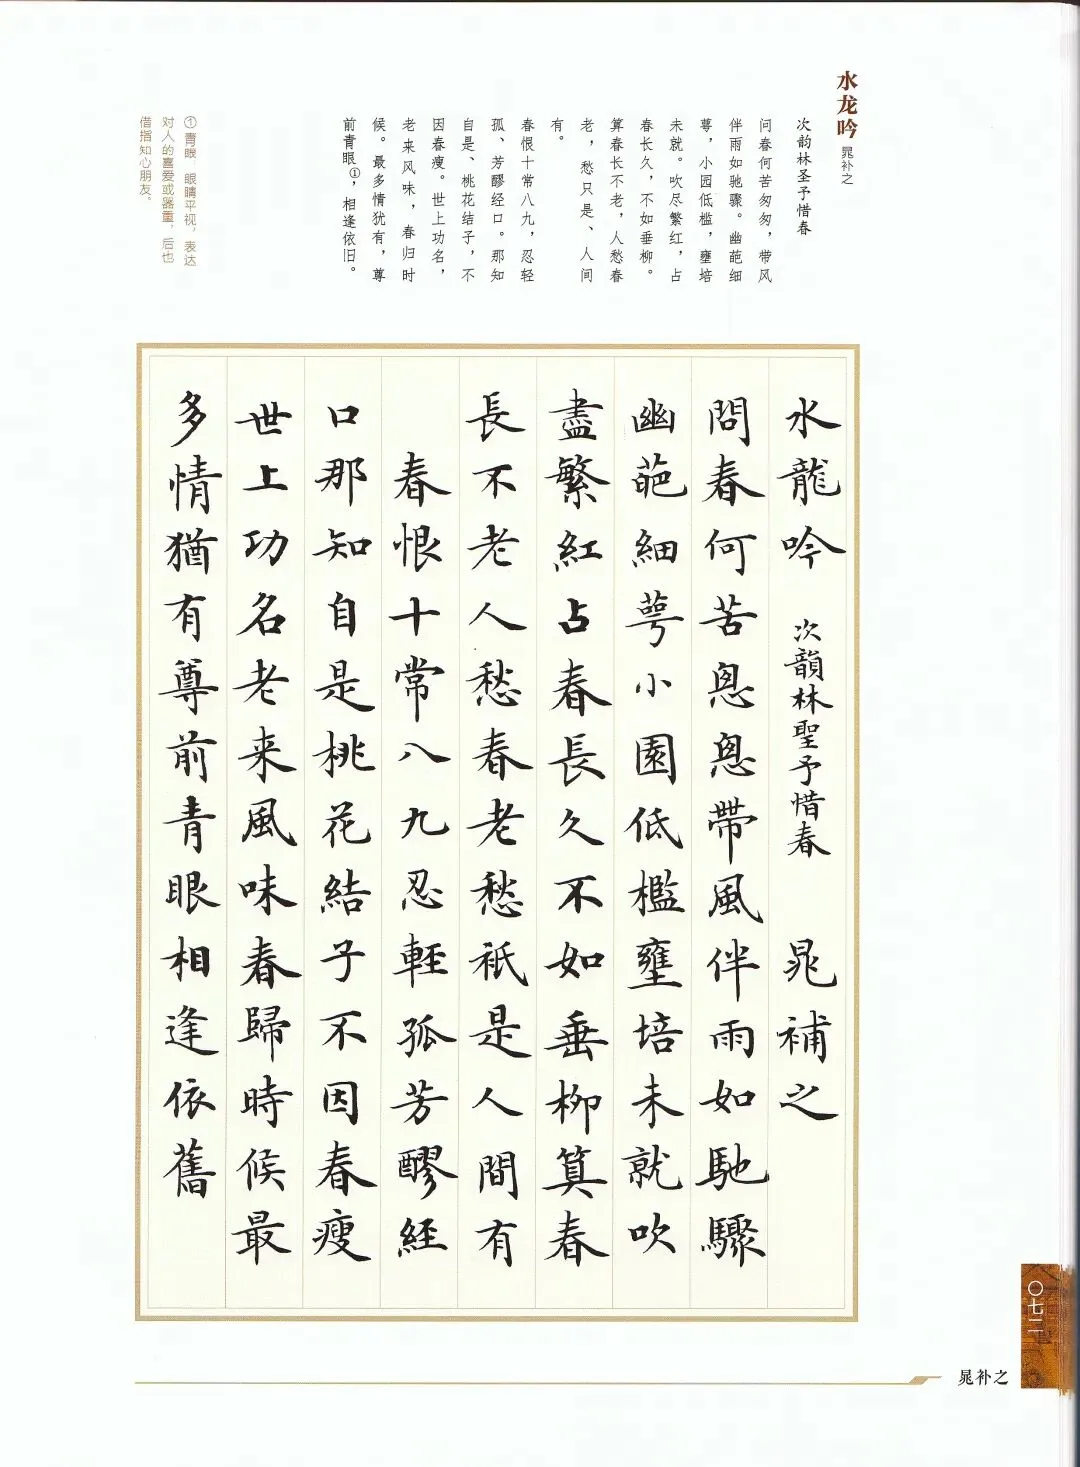 水龙吟 晁补之
次韵林圣予惜春
问春何苦匆匆，带风
伴雨如驰骤。幽葩细
萼，小园低槛，壅培
未就。吹尽繁红，占
春长久，不如垂柳。
算春长不老，人愁春
老，愁只是、人间
有。
春恨十常八九，忍轻
孤、芳醪经口。那知
自是、桃花结子，不
因春瘦。世上功名，
老来风味，春归时
候。最多情犹有，尊
前青眼①，相逢依旧。
① 青眼，眼睛平视，表达
对人的喜爱或器重，后也
借指知心朋友。
水龍吟 次韻林聖予惜春 晁補之
問春何苦悤悤帶風伴雨如馳驟
幽葩細萼小園低檻壅培未就吹
盡繁紅占春長久不如垂柳算春
長不老人愁春老愁衹是人間有
春恨十常八九忍輕孤芳醪經
口那知自是桃花結子不因春瘦
世上功名老来風味春歸時候最
多情猶有尊前青眼相逢依舊
〇七二
晁补之